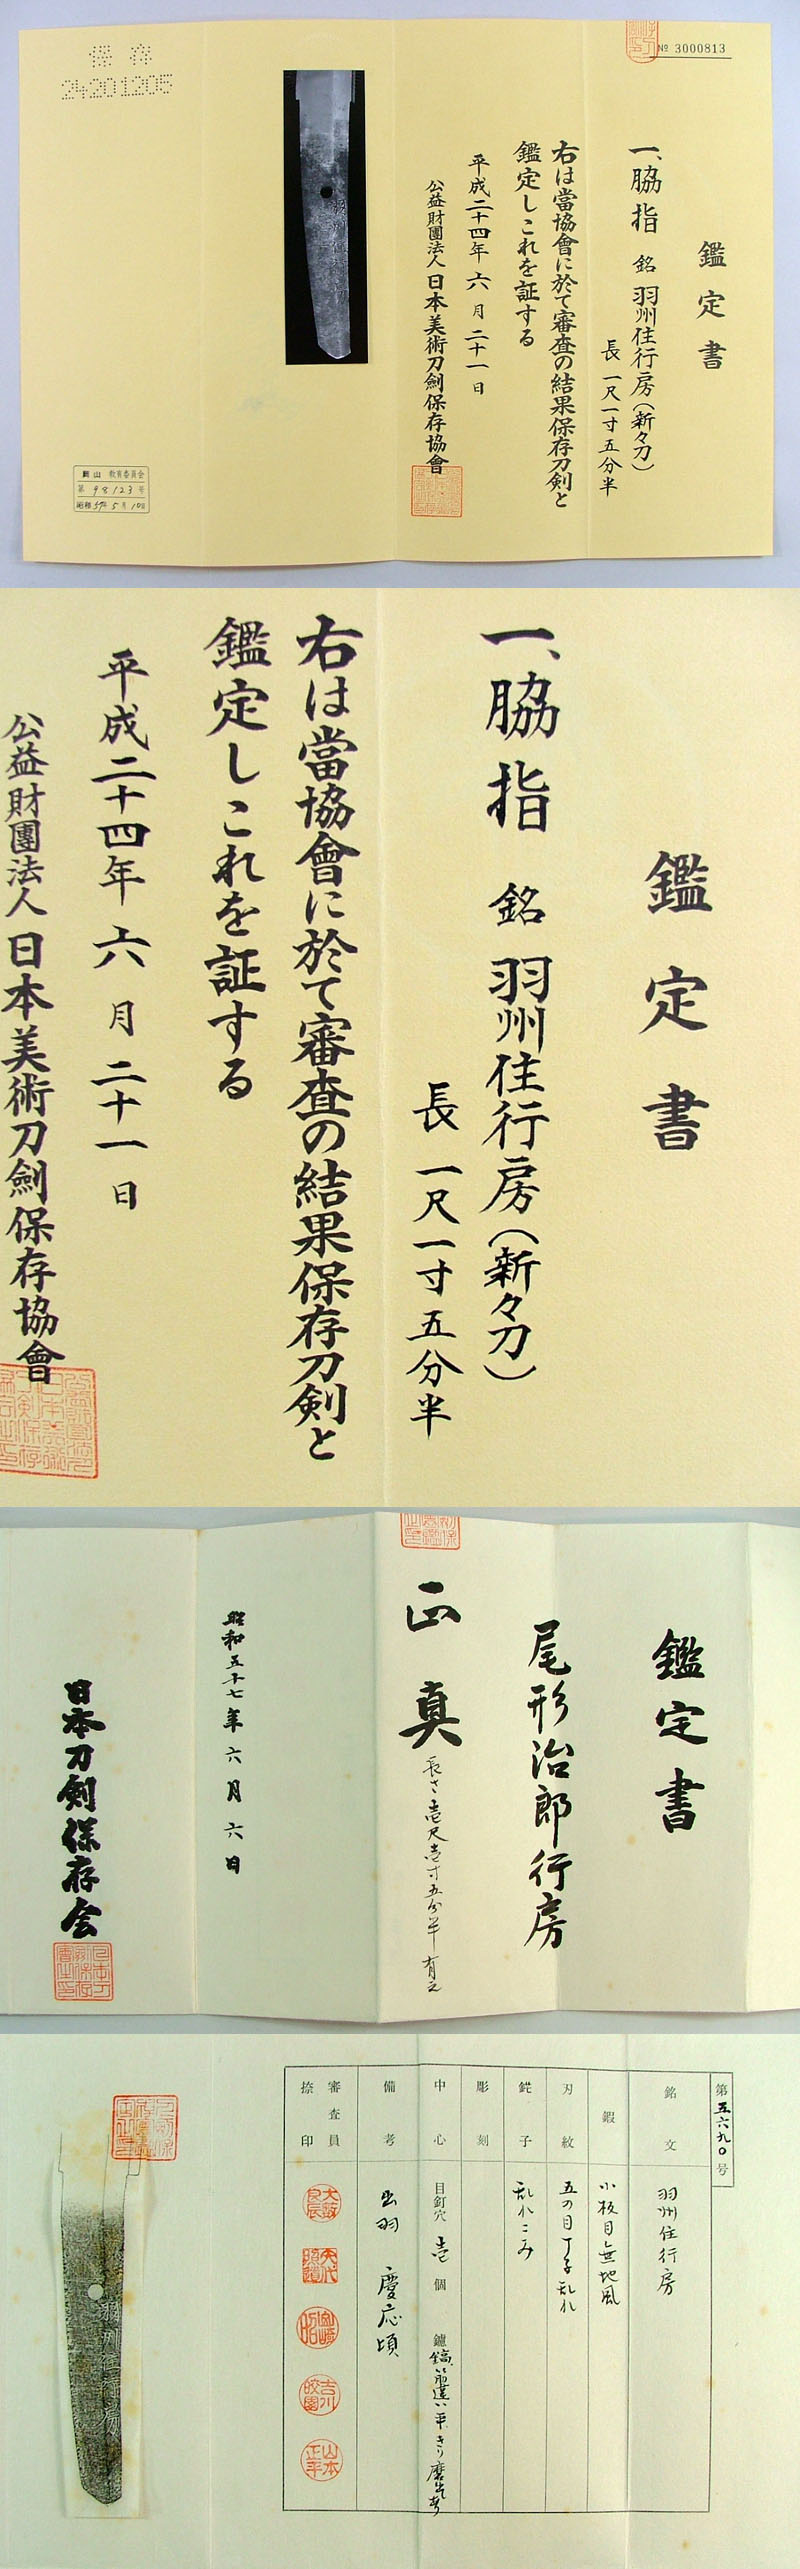 保存
24201205
№ 3000813
鑑定書
一、脇指 銘 羽州住行房(新々刀)
長 一尺一寸五分半
右は當協會に於て審査の結果保存刀剣と
鑑定しこれを証する
平成二十四年 六月 二十一日
公益財團法人 日本美術刀劍保存協會
岡山 教育委員会
第 98123 号
昭和57年5月10日
鑑定書
一、脇指 銘 羽州住行房(新々刀)
長 一尺一寸五分半
右は當協會に於て審査の結果保存刀剣と
鑑定しこれを証する
平成二十四年 六月 二十一日
公益財團法人 日本美術刀劍保存協會
鑑定書
尾形治郎行房
正真
長さ壱尺壱寸五分半 有之
昭和五十七年六月六日
日本刀剣保存会
第五六九〇号
銘文 羽州住行房
鍜 小板目無地風
刃紋 五の目丁子乱れ
鋩子 乱れこみ
彫刻
中心 目釘穴 壱 個 鑪 鎬筋違い平きり
備考 出羽 慶応頃
審査員
捺印
羽州住行房